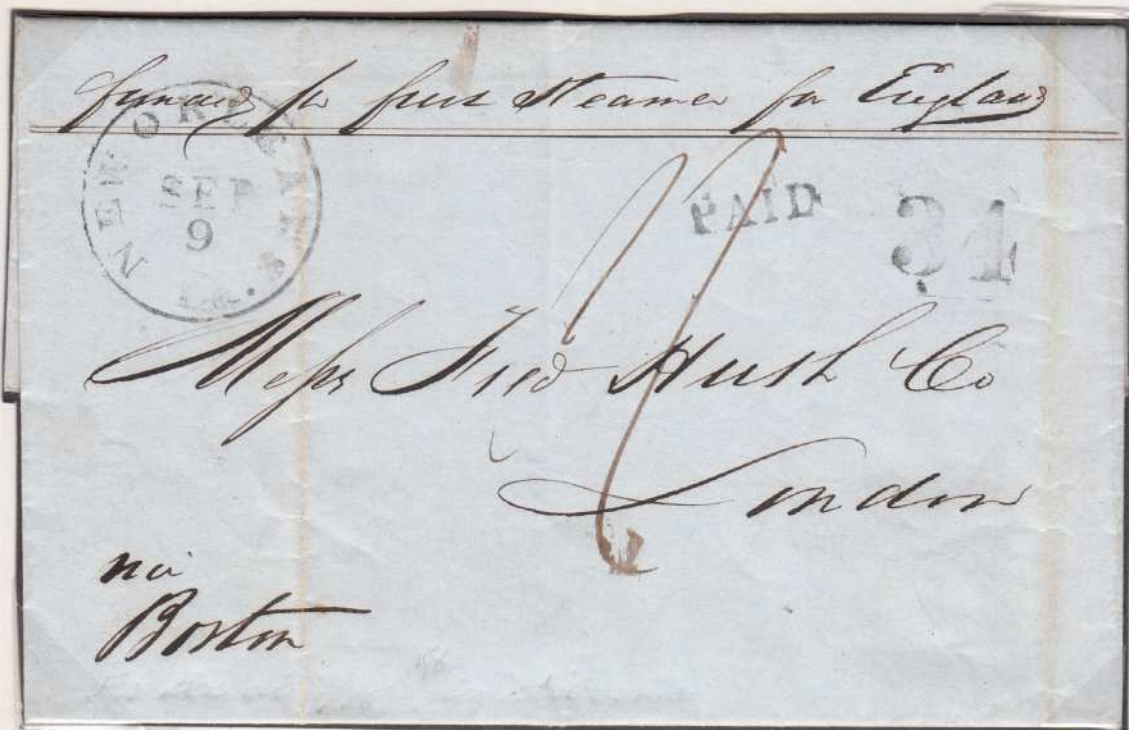 forward per first steamer for England
NEW ORLEANS
SEP
9
La.
PAID
34
Messrs Fred Huth Co
London
via
Boston